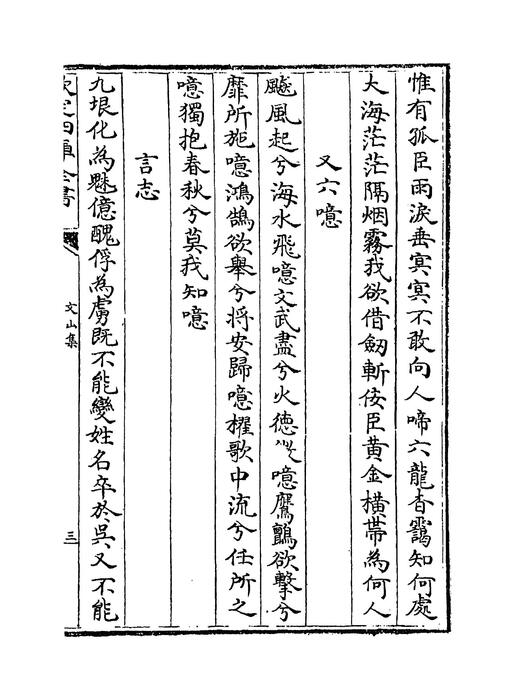 惟有孤臣雨淚垂冥冥不敢向人啼六龍杳靄知何處
大海茫茫隔烟霧我欲借劒斬佞臣黄金横帶為何人
又六噫
颷風起兮海水飛噫文武盡兮火德微噫鷹鸇欲擊兮
靡所施噫鴻鵠欲舉兮將安歸噫櫂歌中流兮任所之
噫獨抱春秋兮莫我知噫
言志
九垠化為魅億醜俘為虜既不能變姓名卒於吳又不能
欽定四庫全書
文山集
三